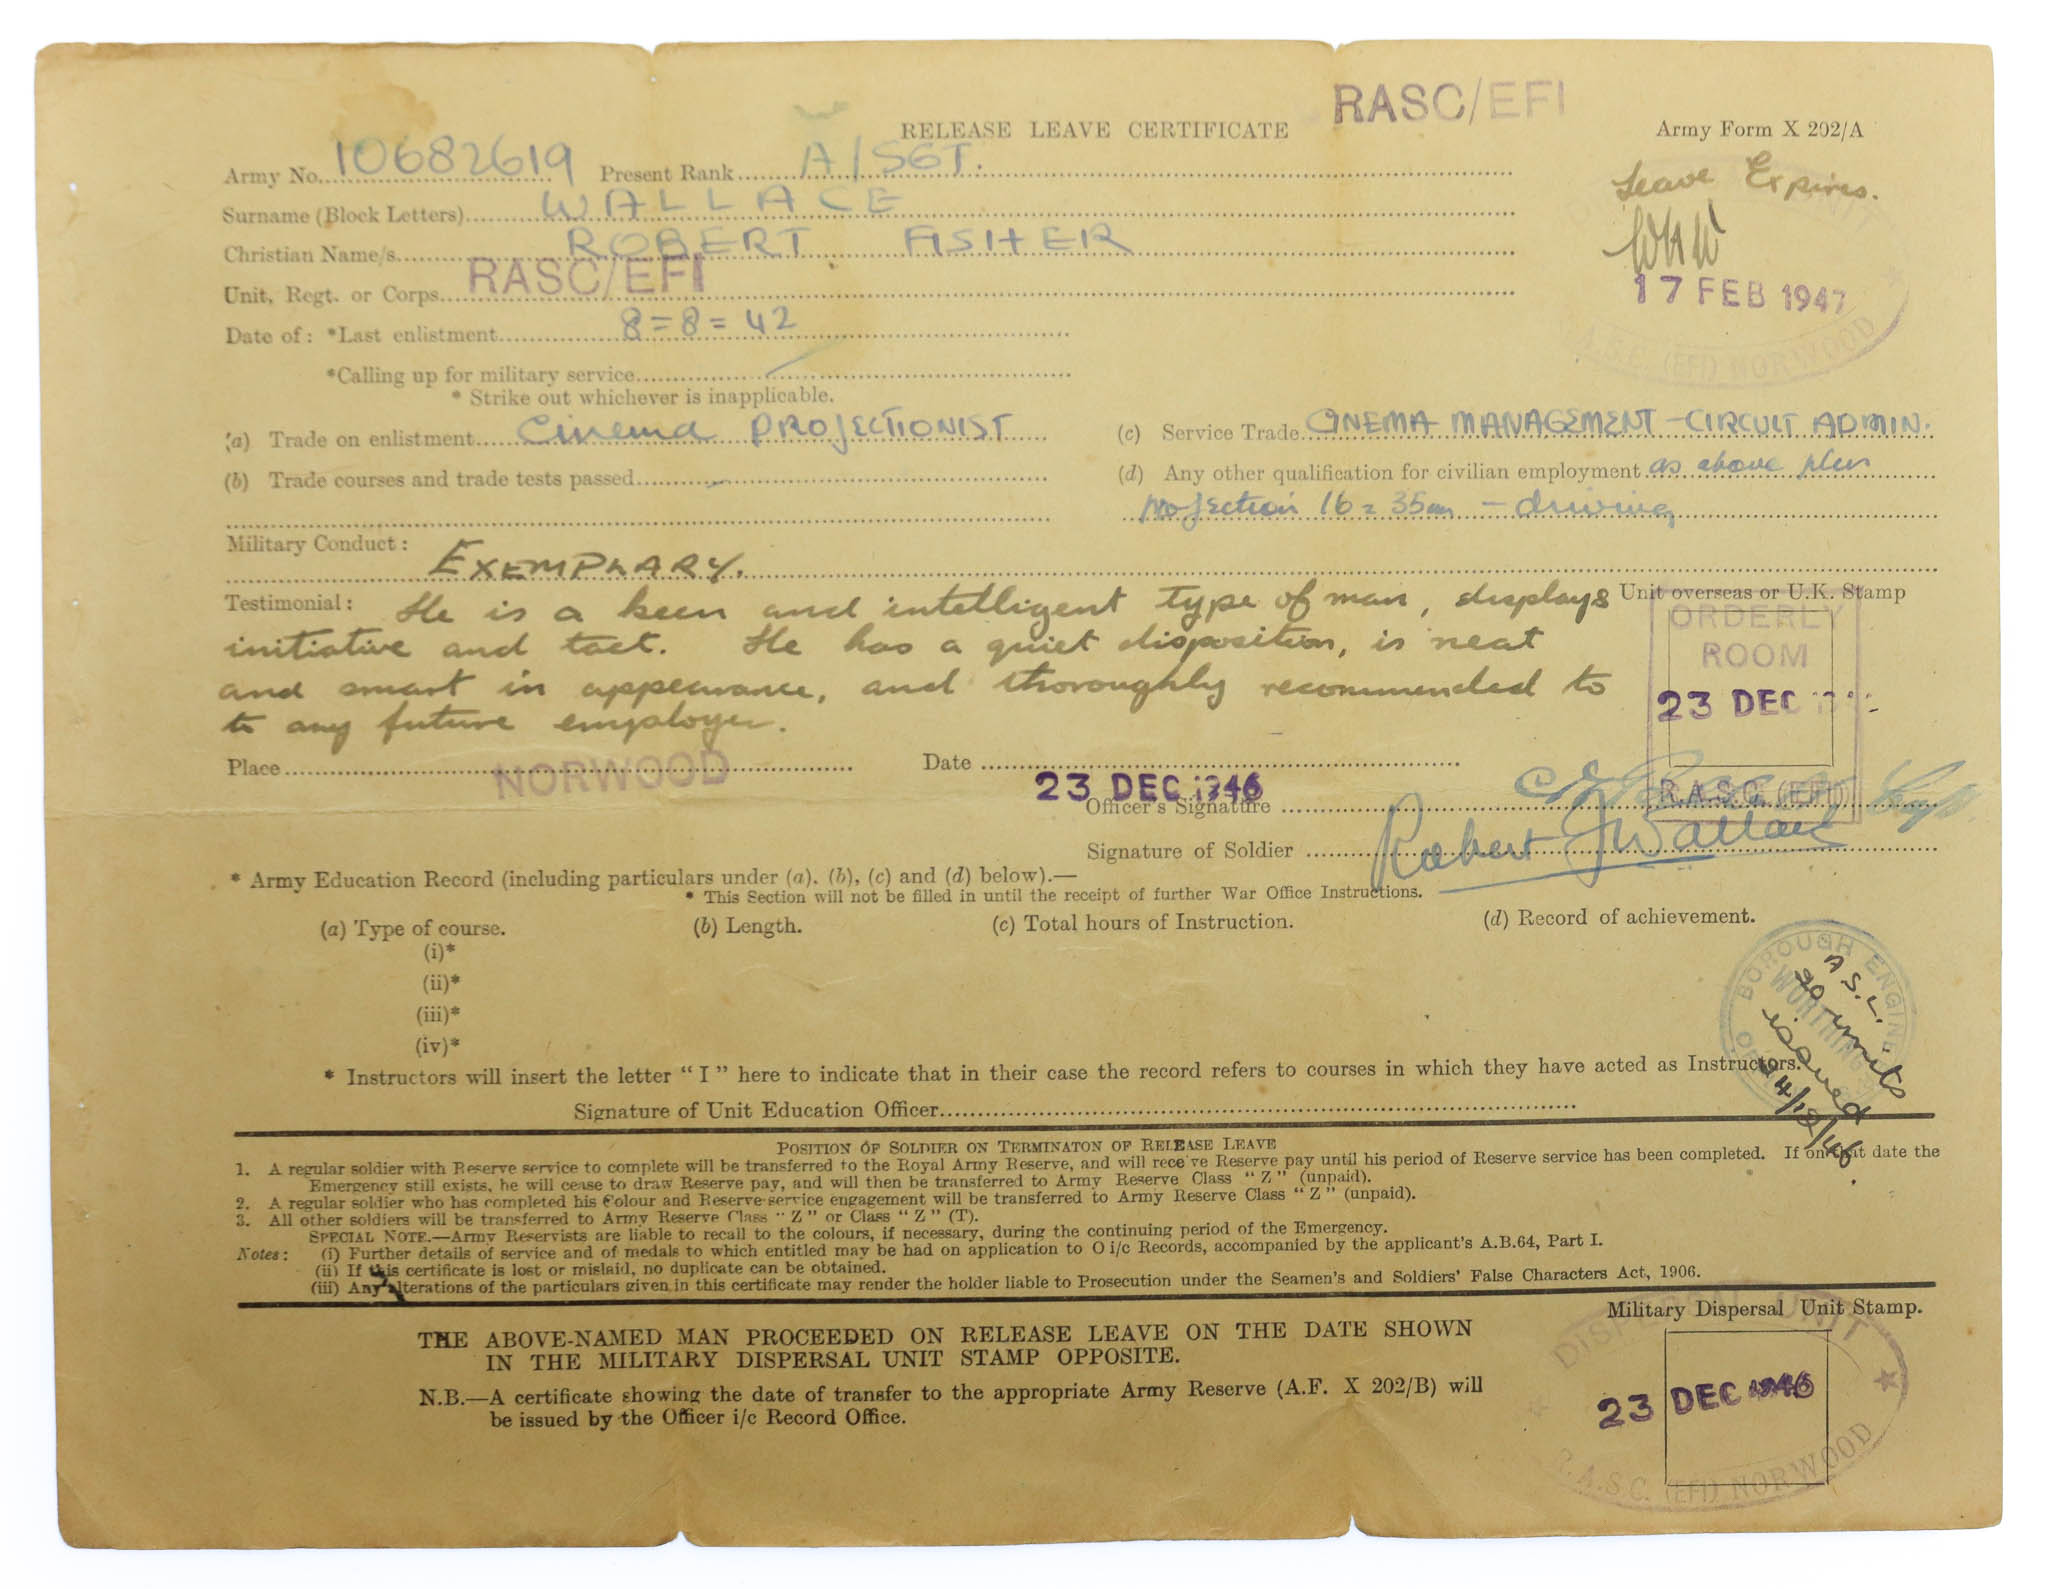 RELEASE LEAVE CERTIFICATE RASC/EFI Army Form X 202/A
Army No. 10682619 Present Rank A/SGT.
Leave Expires.
Surname (Block Letters) WALLACE
Christian Name/s ROBERT FISHER
17 FEB 1947
Unit, Regt. or Corps RASC/EFI
R.A.S.C. (EFI) NORWOOD
Date of: *Last enlistment 8=8=42
*Calling up for military service
* Strike out whichever is inapplicable.
(a) Trade on enlistment Cinema PROJECTIONIST
(c) Service Trade CINEMA MANAGEMENT - CIRCUIT ADMIN.
(b) Trade courses and trade tests passed
(d) Any other qualification for civilian employment as above plus
projection 16 = 35mm - driving
Military Conduct: EXEMPLARY.
Testimonial: He is a keen and intelligent type of man, displays
initiative and tact. He has a quiet disposition, is neat
and smart in appearance, and thoroughly recommended to
to any future employer.
Unit overseas or U.K. Stamp
ORDERLY
ROOM
23 DEC
R.A.S.C. (EFI)
Place NORWOOD Date 23 DEC 1946
Officer's Signature
Signature of Soldier Robert F Wallace
* Army Education Record (including particulars under (a). (b), (c) and (d) below).—
* This Section will not be filled in until the receipt of further War Office Instructions.
(a) Type of course. (b) Length. (c) Total hours of Instruction. (d) Record of achievement.
(i)*
(ii)*
(iii)*
(iv)*
BOROUGH ENGINE
WORTHING
A.S.L.
20 units
issued
* Instructors will insert the letter "I" here to indicate that in their case the record refers to courses in which they have acted as Instructors.
Signature of Unit Education Officer
POSITION OF SOLDIER ON TERMINATON OF RELEASE LEAVE
1. A regular soldier with Reserve service to complete will be transferred to the Royal Army Reserve, and will receive Reserve pay until his period of Reserve service has been completed. If on that date the
Emergency still exists, he will cease to draw Reserve pay, and will then be transferred to Army Reserve Class "Z" (unpaid).
2. A regular soldier who has completed his Colour and Reserve service engagement will be transferred to Army Reserve Class "Z" (unpaid).
3. All other soldiers will be transferred to Army Reserve Class "Z" or Class "Z" (T).
SPECIAL NOTE.—Army Reservists are liable to recall to the colours, if necessary, during the continuing period of the Emergency.
Notes: (i) Further details of service and of medals to which entitled may be had on application to O i/c Records, accompanied by the applicant's A.B.64, Part I.
(ii) If this certificate is lost or mislaid, no duplicate can be obtained.
(iii) Any alterations of the particulars given in this certificate may render the holder liable to Prosecution under the Seamen's and Soldiers' False Characters Act, 1906.
Military Dispersal Unit Stamp.
THE ABOVE-NAMED MAN PROCEEDED ON RELEASE LEAVE ON THE DATE SHOWN
IN THE MILITARY DISPERSAL UNIT STAMP OPPOSITE.
N.B.—A certificate showing the date of transfer to the appropriate Army Reserve (A.F. X 202/B) will
be issued by the Officer i/c Record Office.
DISPERSAL UNIT
23 DEC 1946
R.A.S.C. (EFI) NORWOOD